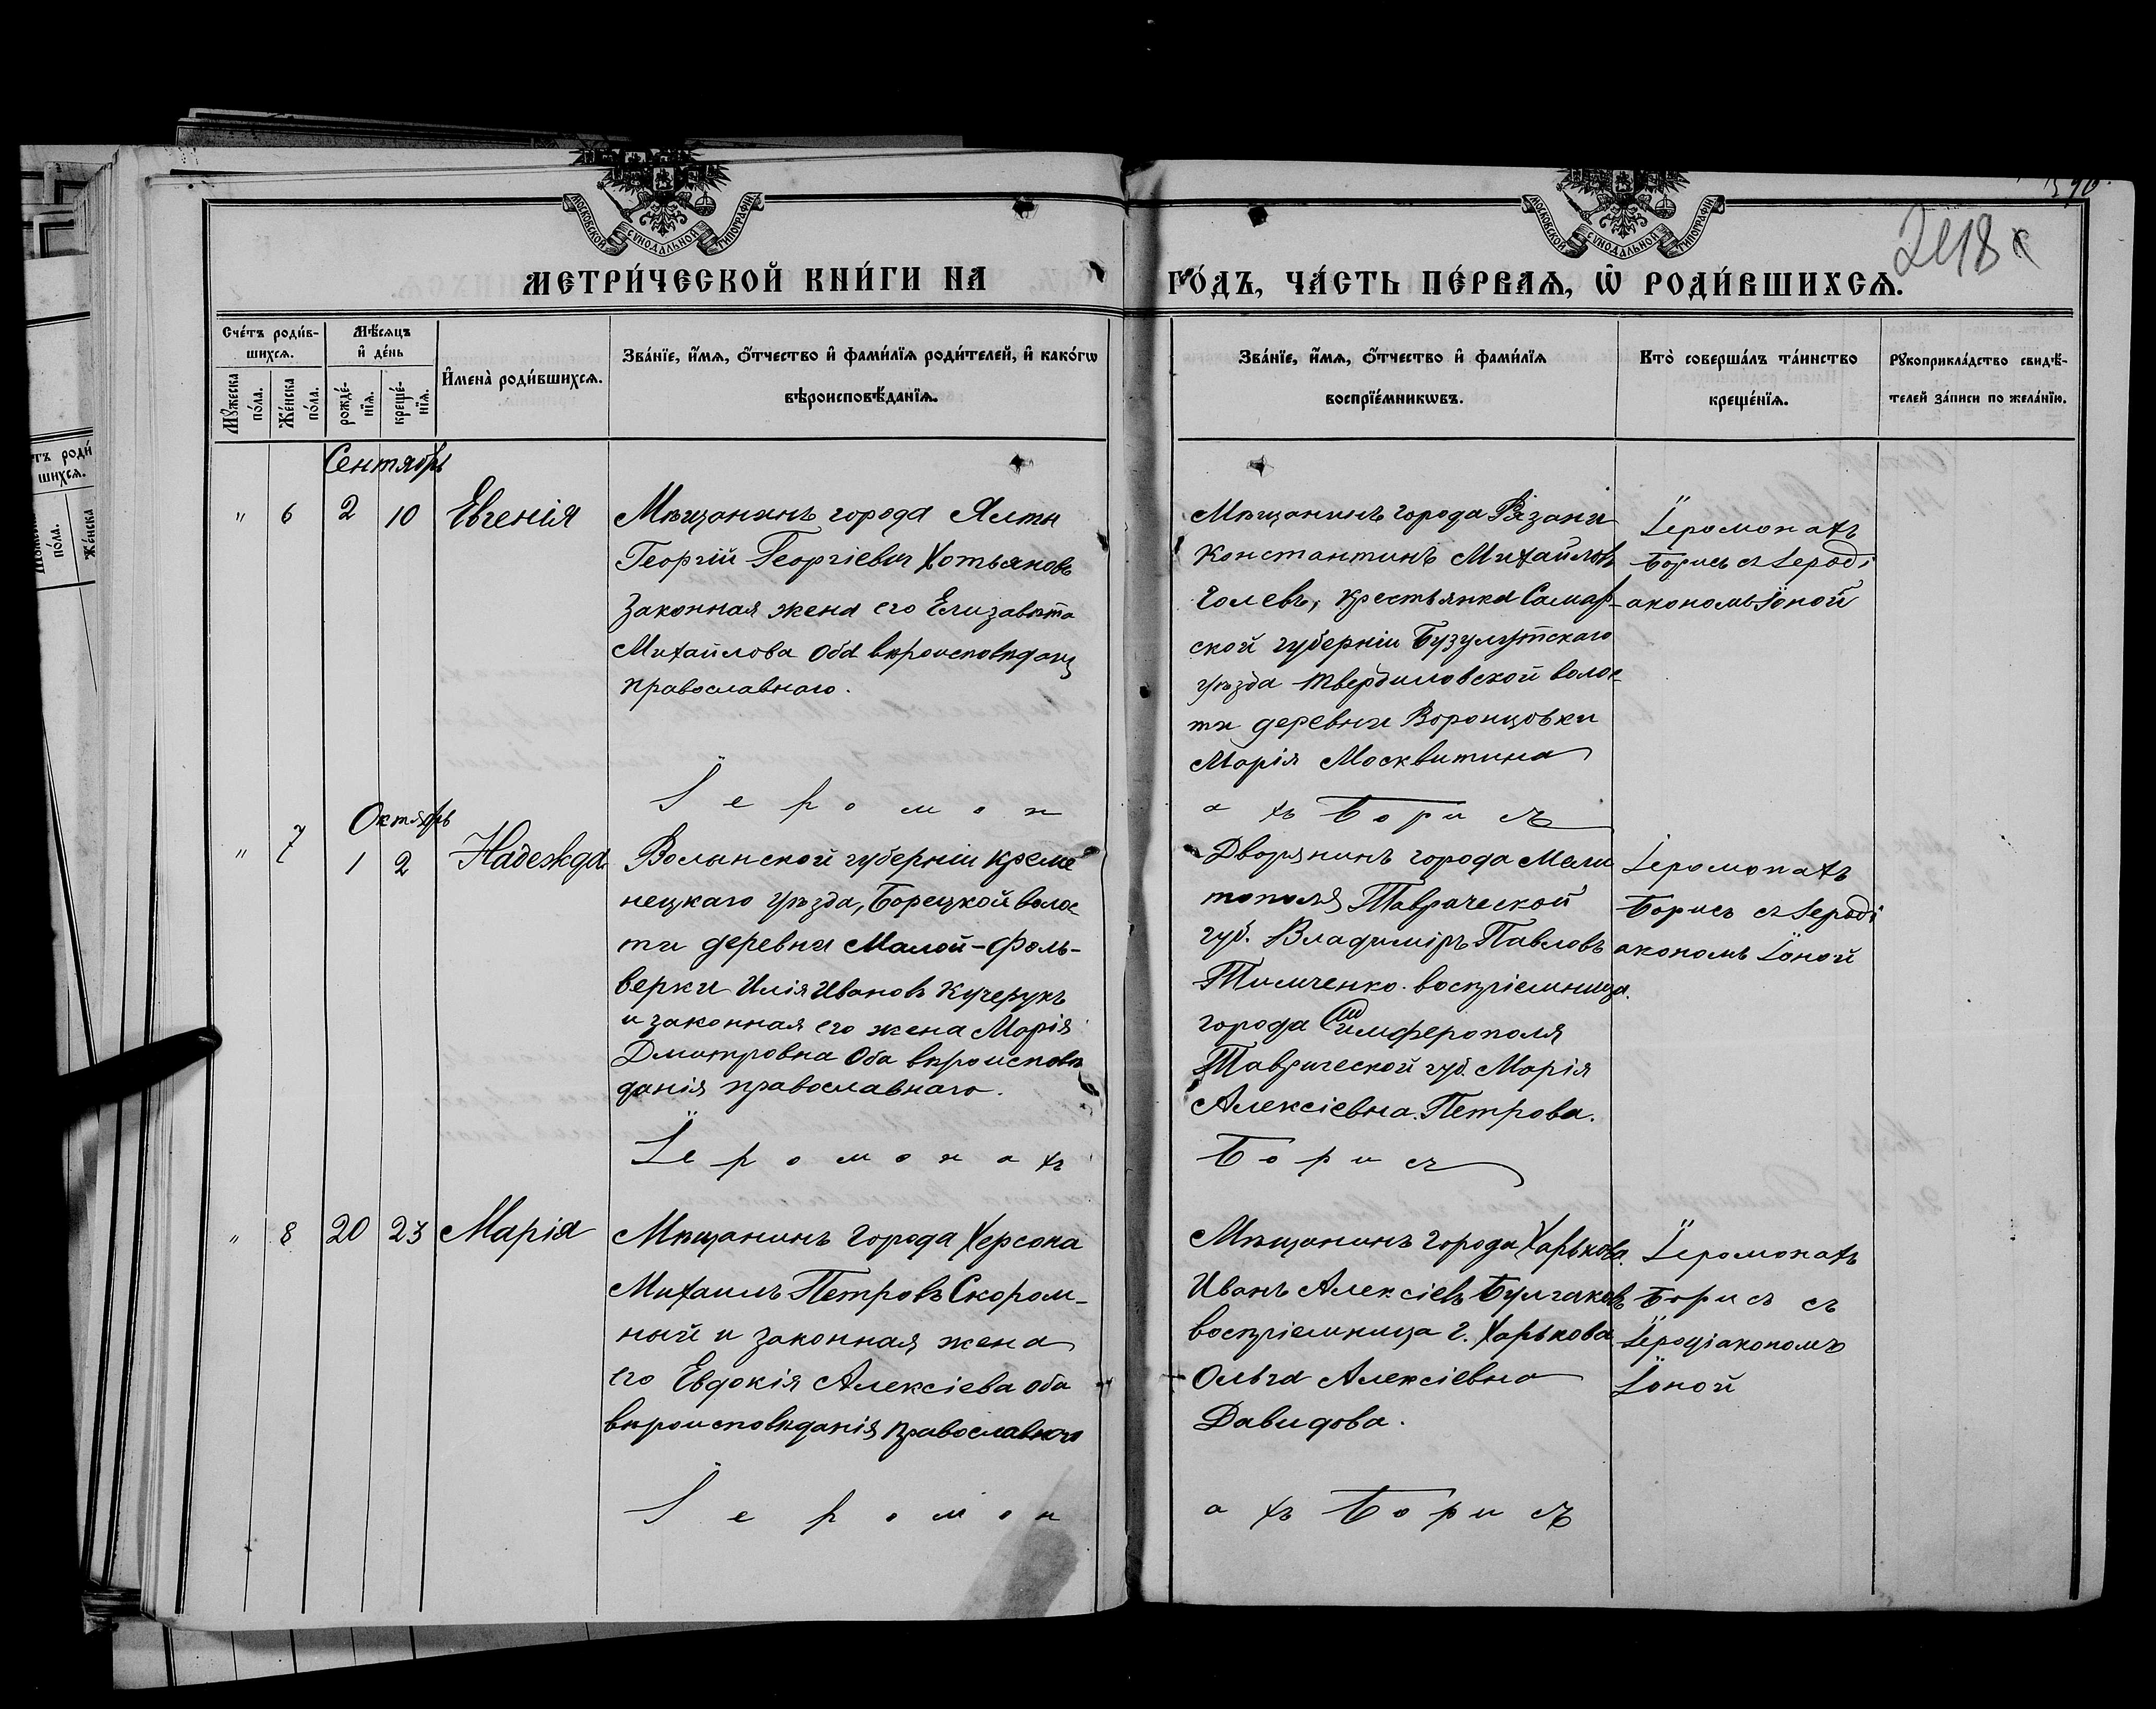 МОСКОВСКОЙ СѴНОДАЛЬНОЙ ТИПОГРАФІИ
МОСКОВСКОЙ СѴНОДАЛЬНОЙ ТИПОГРАФІИ
2418
МЕТРИ́ЧЕСКОЙ КНИ́ГИ НА
ГО́ДЪ, ЧА́СТЬ ПЕ́РВАѦ, Ѿ РОДИ́ВШИХСѦ.
Сче́тъ роди́в-
шихсѧ.
Мꙋ́жеска по́ла.
Же́нска по́ла.
Мѣ́сѧцъ
и҆ де́нь
рожде́-
нїѧ.
креще́-
нїѧ.
И҆мена̀ роди́вшихсѧ.
Зва́нїе, и҆́мѧ, ѻ҆́тчество и҆ фами́лїѧ роди́телей, и҆ како́гѡ
вѣроисповѣ́данїѧ.
Зва́нїе, и҆́мѧ, ѻ҆́тчество и҆ фами́лїѧ
воспрїе́мникѡвъ.
Кто̀ соверша́лъ та́инство
креще́нїѧ.
Рꙋкоприкла́дство свидѣ́-
телей за́писи по жела́нїю.
Сентябрь
" 6 2 10 Евгенія
Мѣщанинъ города Ялты
Георгій Георгіевич Хотьяновъ
Законная жена его Елизавѣта
Михайлова Оба вѣроисповѣданія
православнаго.
Мѣщанинъ города Рязани
Константинъ Михайловъ
Голевъ, крестьянка Самар-
ской губерніи Бузулутскаго
уѣзда Твердиловской волос-
ти деревни Воронцовки
Марія Москвитина
Іеромонахъ
Борисъ съ Іероді
акономъ Іоной
Іеромон
ахъ Борисъ
Октябрь
" 7 1 2 Надежда
Волынской губерніи Креме
нецкаго уѣзда, Борецкой волос
ти деревни Малой-Фоль-
верки Илія Ивановъ Кучерукъ
и законная его жена Марія
Дмитровна Оба вѣроисповѣ
данія православнаго.
Дворянинъ города Мели
тополя Таврической
губ. Владиміръ Павловъ
Тимченко. воспріемница.
города Симферополя
Таврической губ. Марія
Алексіевна. Петрова.
Іеромонахъ
Борисъ съ Іероді
акономъ Іоной
Іеромонахъ
Борисъ
" 8 20 23 Марія
Мѣщанинъ города Херсона
Михаилъ Петровъ Скором-
ный и законная жена
его Евдокія Алексіева оба
вѣроисповѣданія православнаго
Мѣщанинъ города Харькова.
Иванъ Алексіевъ Булгаковъ
воспріемница г. Харькова
Ольга Алексіевна
Давидова.
Іеромонахъ
Борисъ съ
Іеродіакономъ
Іоной
Іеромон
ахъ Борисъ